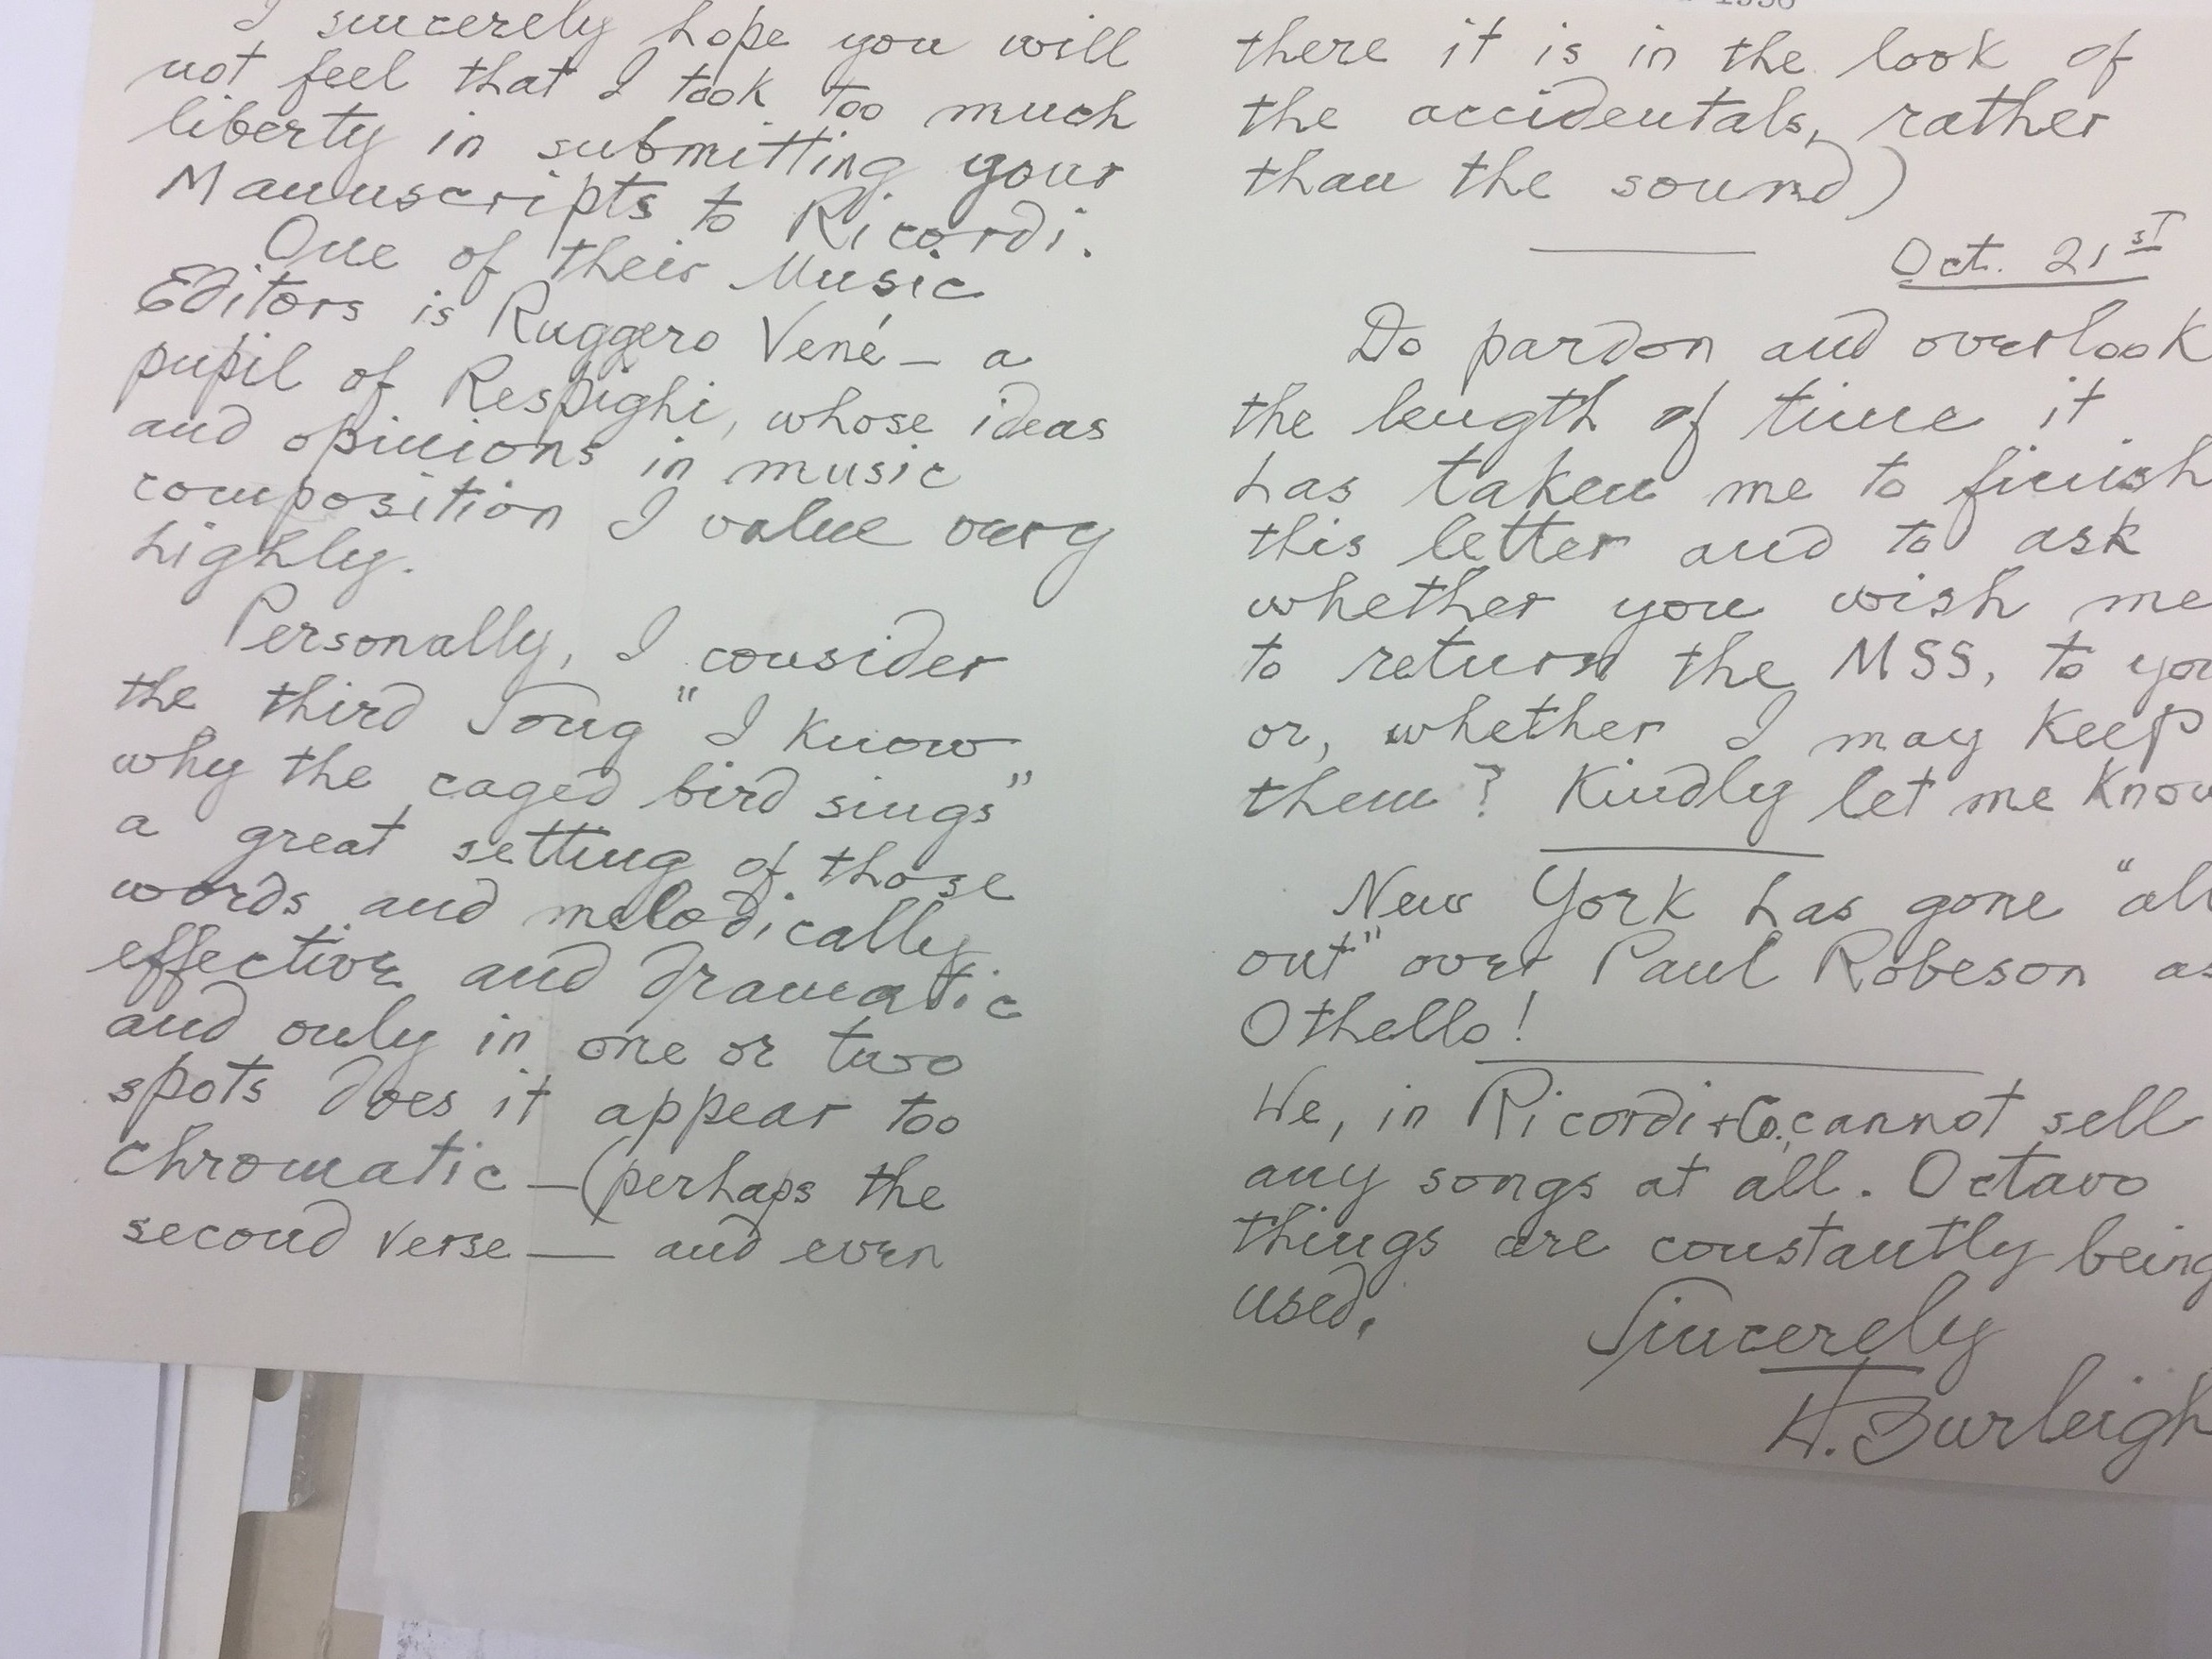 I sincerely hope you will
not feel that I took too much
liberty in submitting your
Manuscripts to Ricordi.
One of their Music
Editors is Ruggero Vené — a
pupil of Respighi, whose ideas
and opinions in music
composition I value very
highly.
Personally, I consider
the third Song "I know
why the caged bird sings"
a great setting of those
words and melodically
effective and dramatic
and only in one or two
spots does it appear too
chromatic — (perhaps the
second verse — and even
there it is in the look of
the accidentals, rather
than the sound)
Oct. 21st
Do pardon and overlook
the length of time it
has taken me to finish
this letter and to ask
whether you wish me
to return the MSS, to you
or, whether I may keep
them? Kindly let me know
New York has gone "all
out" over Paul Robeson as
Othello!
We, in Ricordi + Co., cannot sell
any songs at all. Octavo
things are constantly being
used.
Sincerely
H. Burleigh